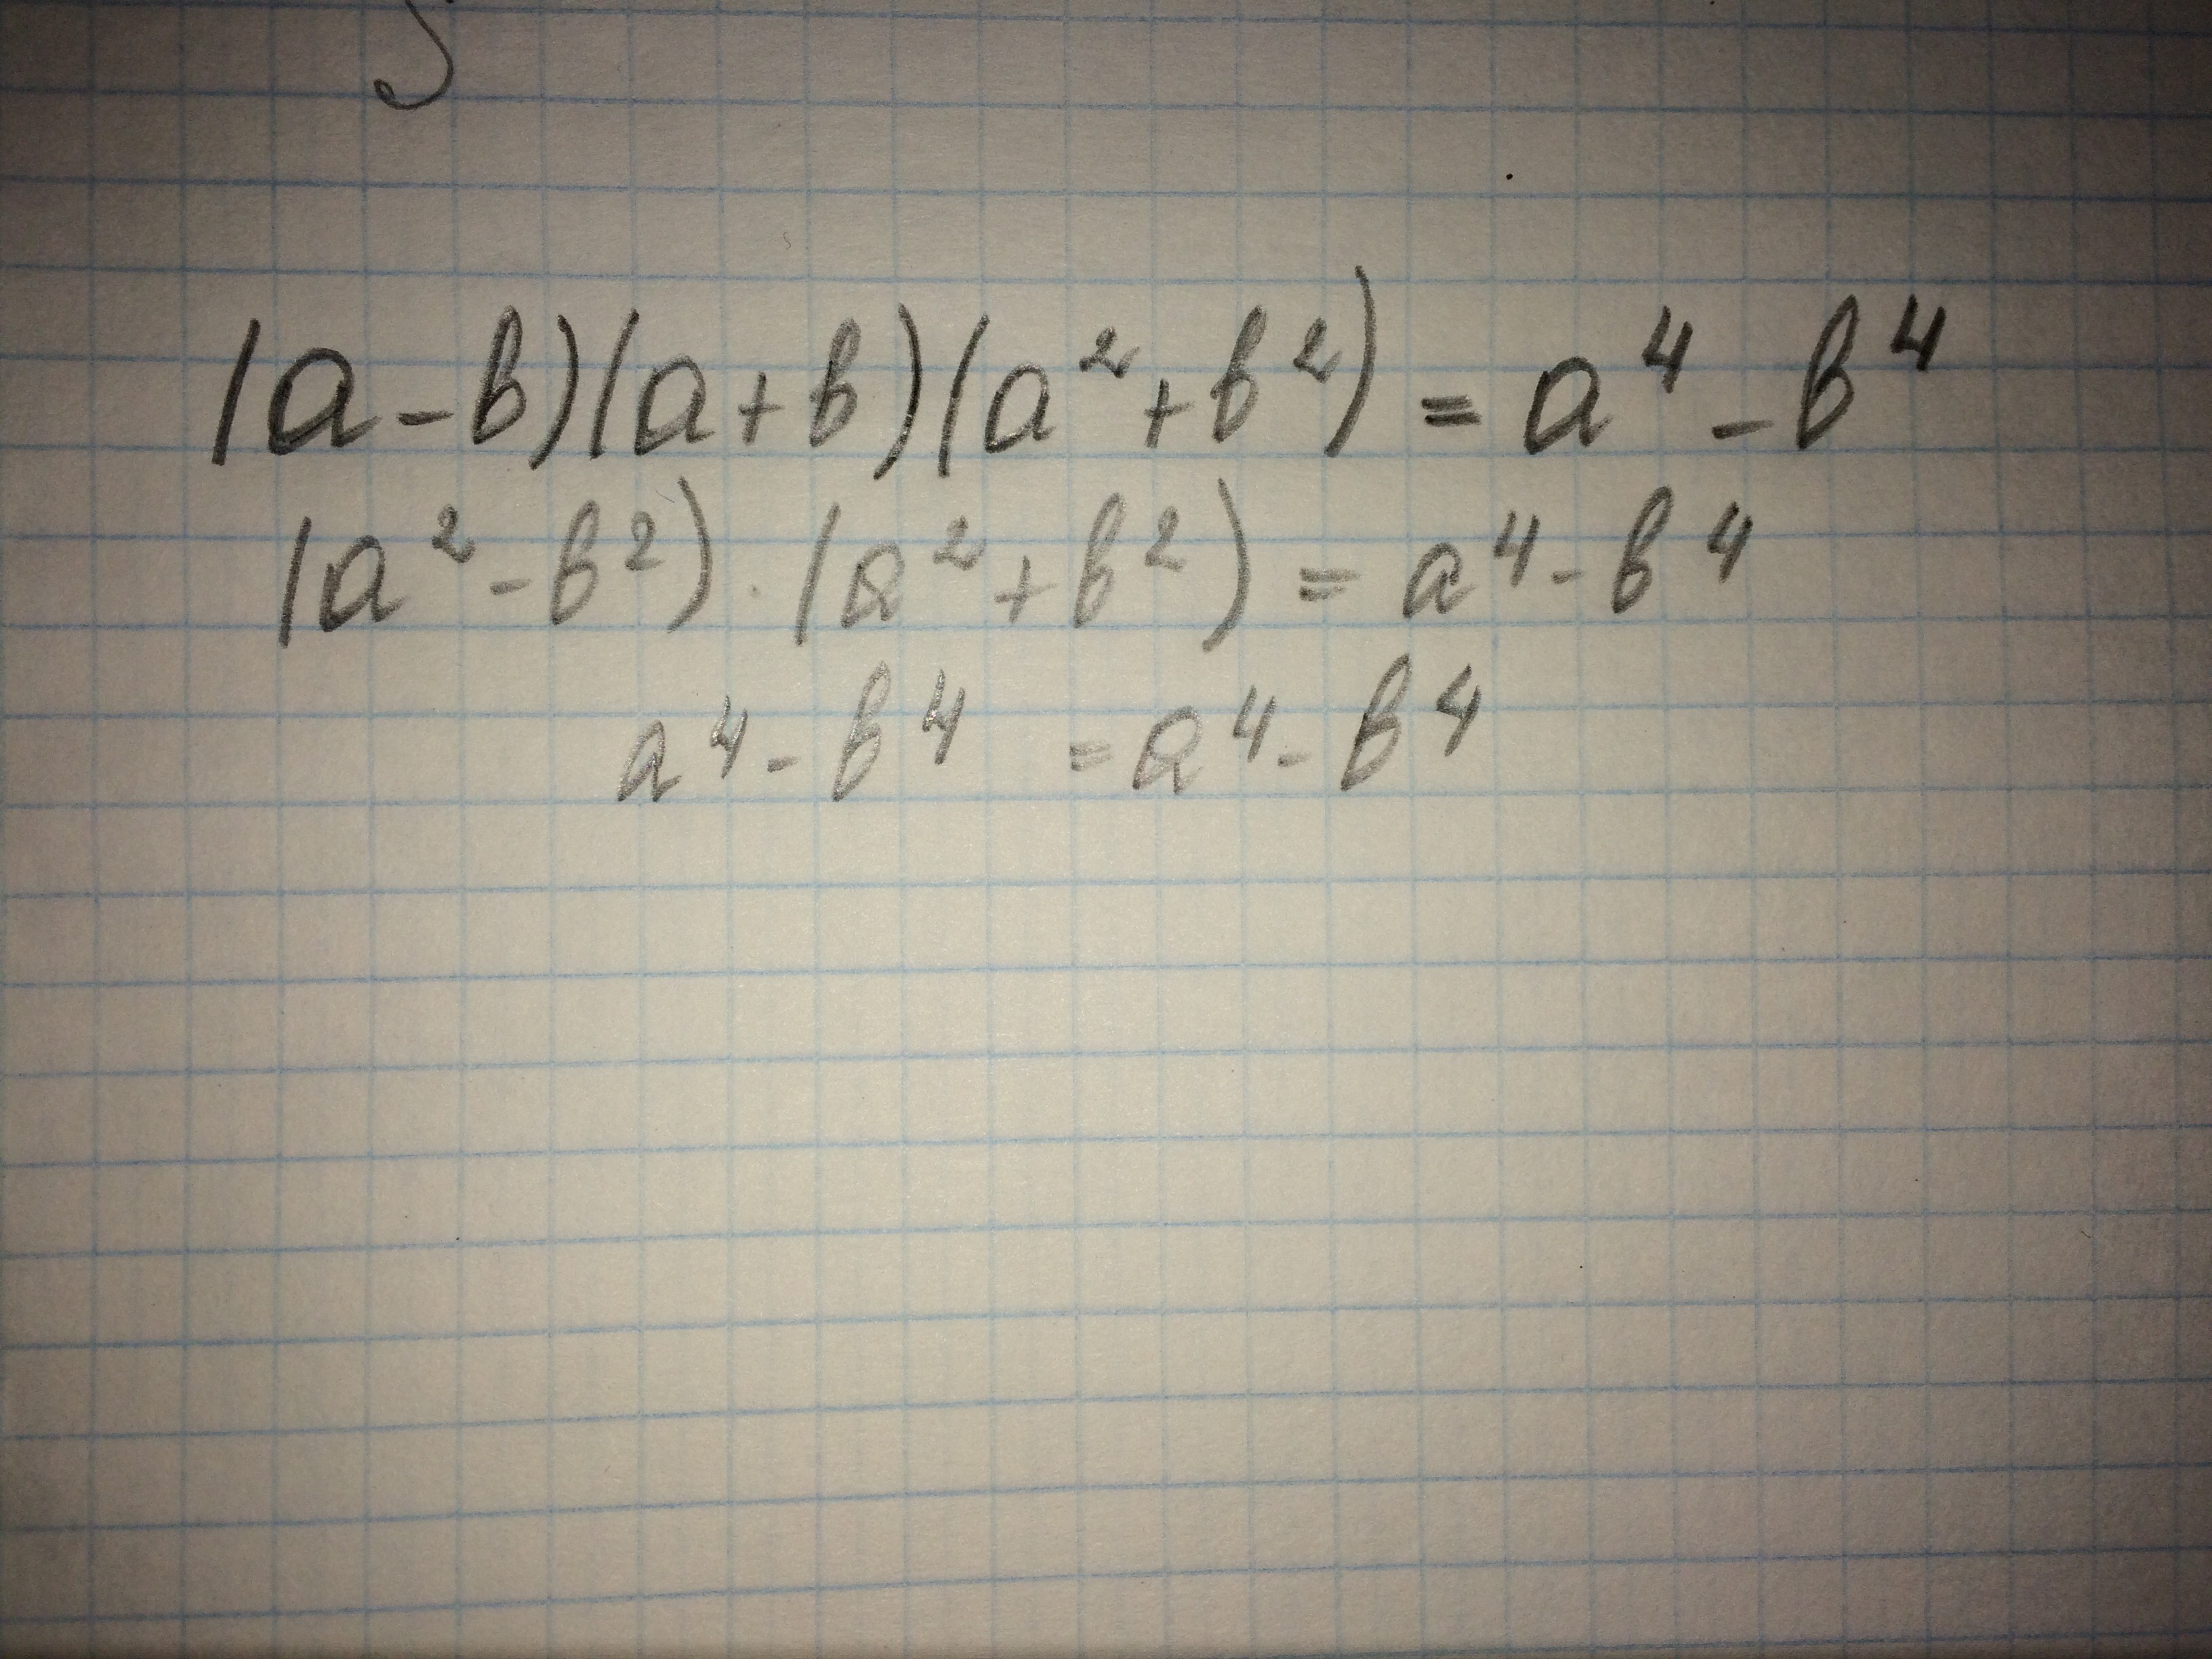 (a-b)(a+b)(a²+b²) = a⁴-b⁴
(a²-b²)·(a²+b²) = a⁴-b⁴
a⁴-b⁴ = a⁴-b⁴